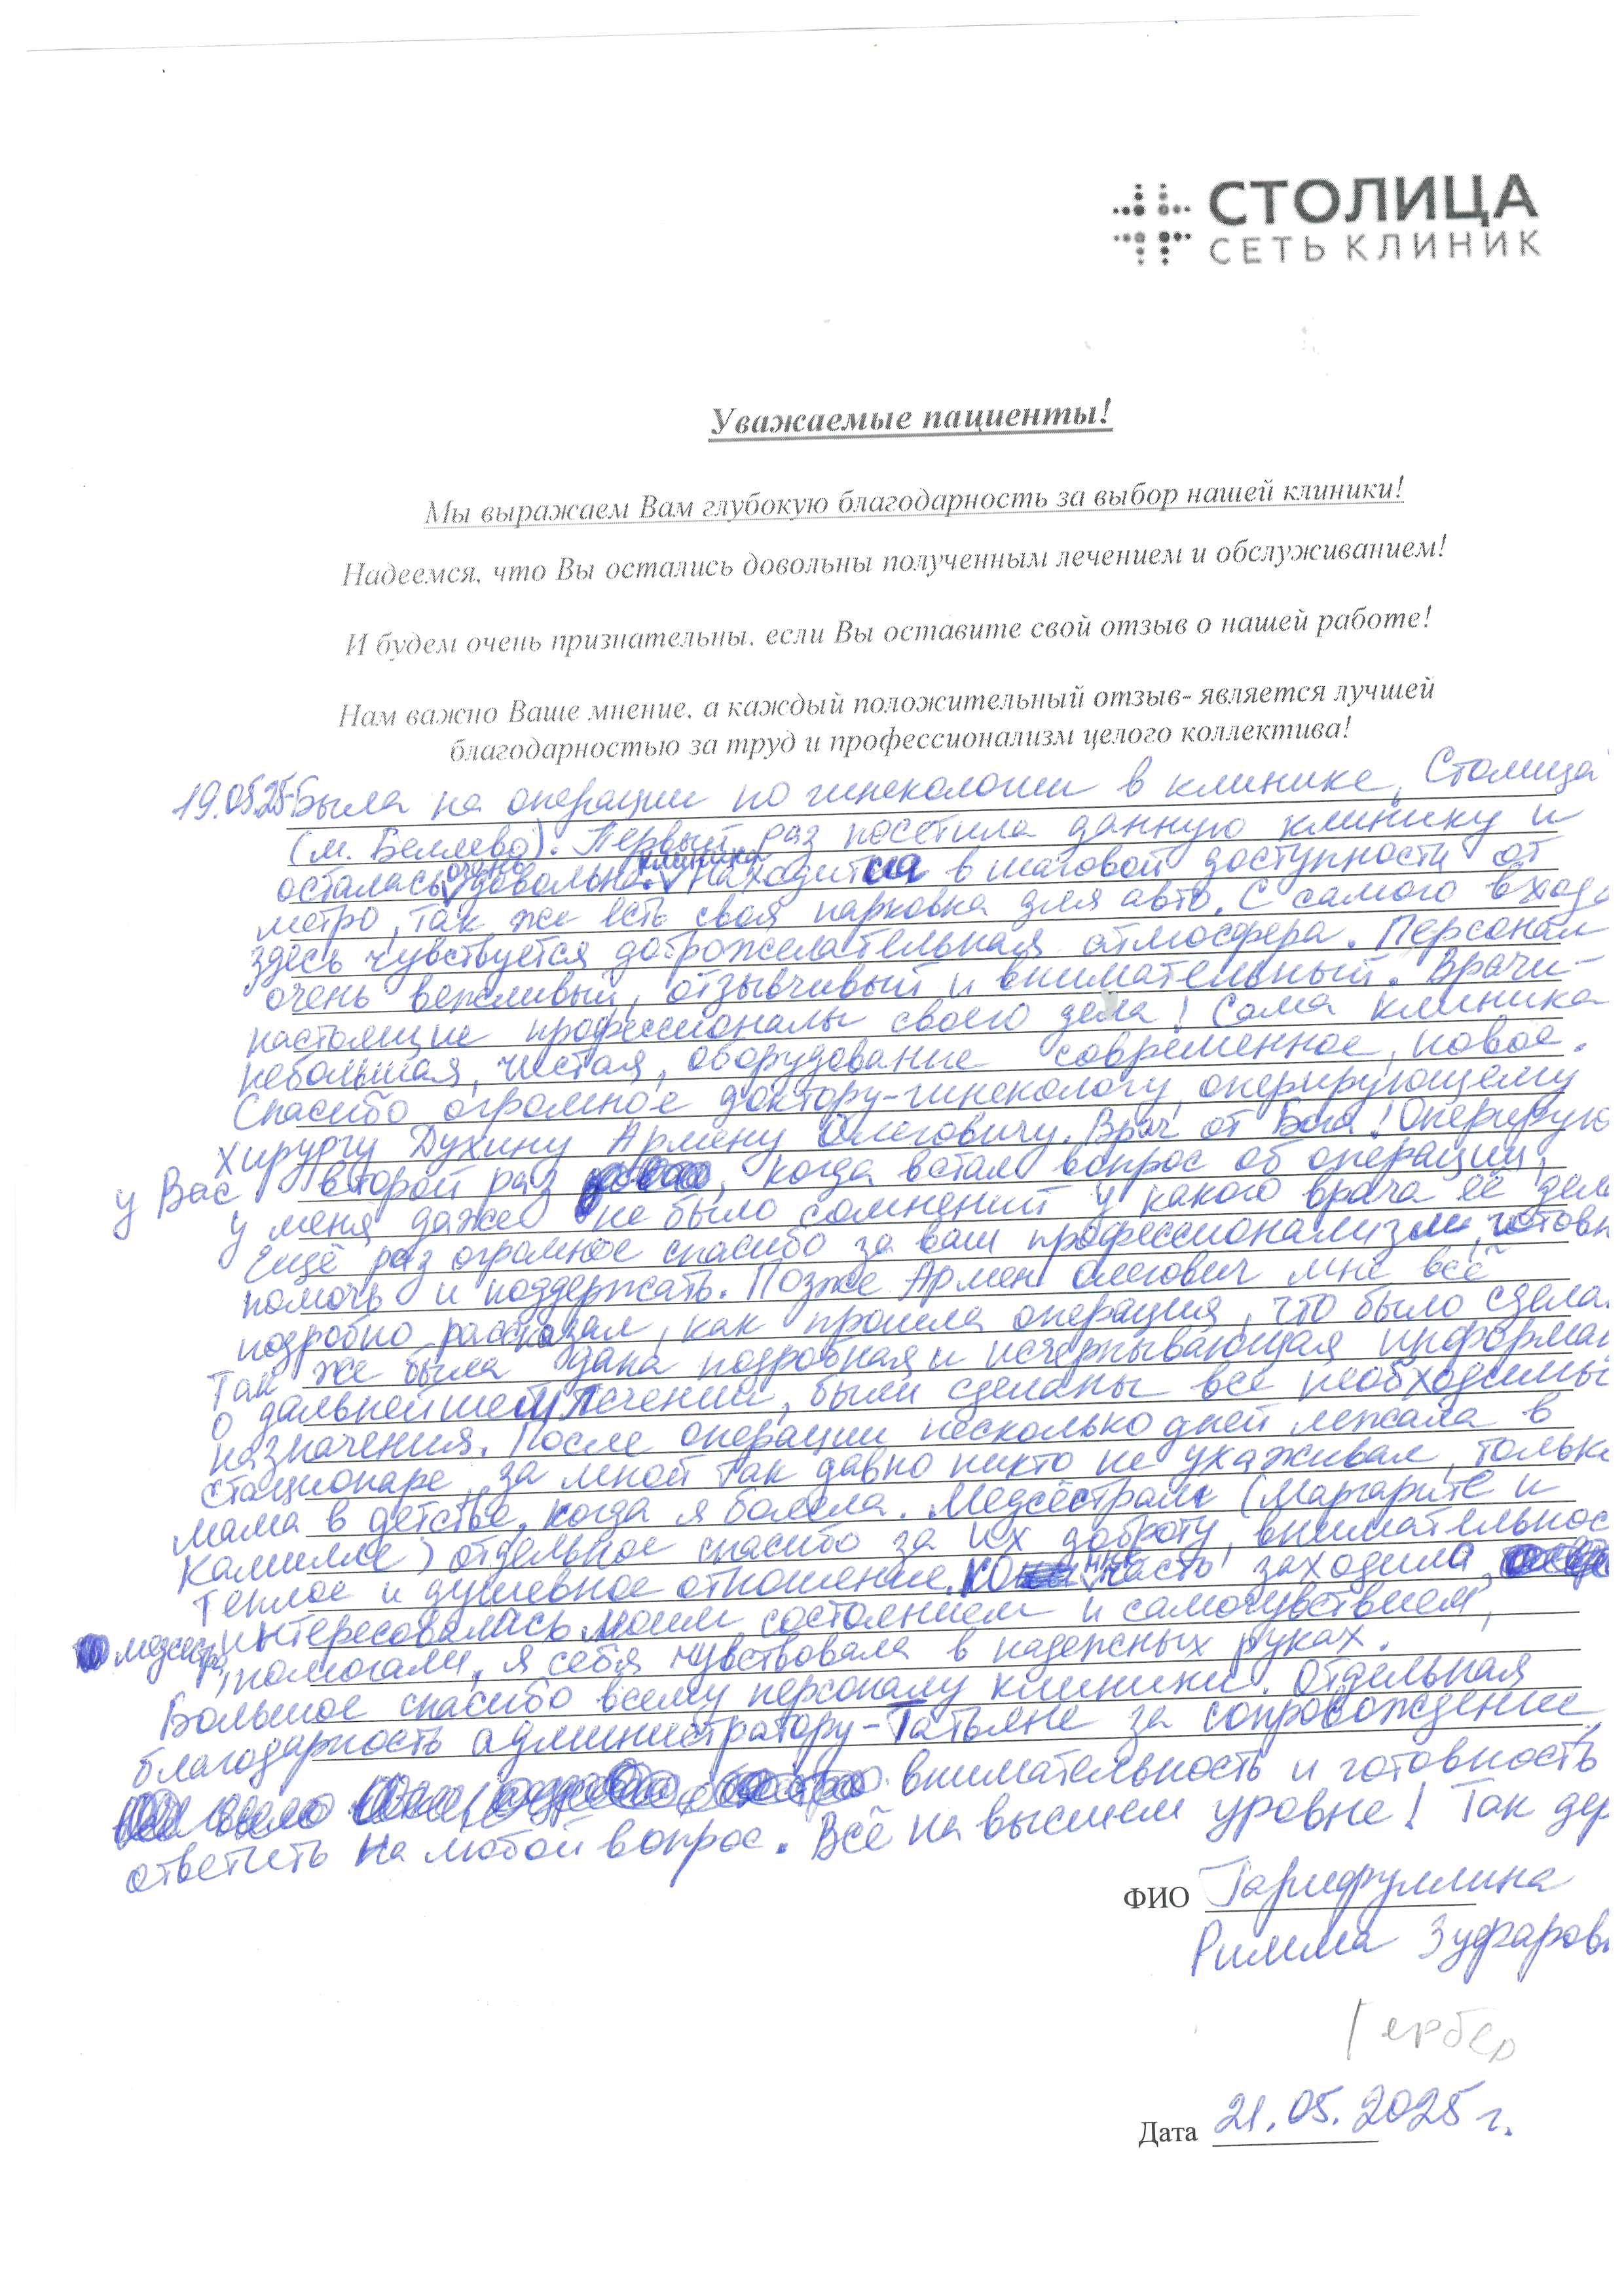 СТОЛИЦА
СЕТЬ КЛИНИК
Уважаемые пациенты!
Мы выражаем Вам глубокую благодарность за выбор нашей клиники!
Надеемся, что Вы остались довольны полученным лечением и обслуживанием!
И будем очень признательны, если Вы оставите свой отзыв о нашей работе!
Нам важно Ваше мнение, а каждый положительный отзыв- является лучшей
благодарностью за труд и профессионализм целого коллектива!
19.05.25 Была на операции по гинекологии в клинике „Столица"
(м. Беляево). Первый раз посетила данную клинику и
осталась очень довольна. Клиника находится в шаговой доступности от
метро, так же есть своя парковка для авто. С самого входа
здесь чувствуется доброжелательная атмосфера. Персонал
очень вежливый, отзывчивый и внимательный. Врачи-
настоящие профессионалы своего дела! Сама клиника
небольшая, чистая, оборудование современное, новое.
Спасибо огромное доктору-гинекологу, оперирующему
хирургу Духину Армену Олеговичу. Врач от Бога! Оперирую
у Вас второй раз, когда встал вопрос об операции,
у меня даже не было сомнений у какого врача её дел
Ещё раз огромное спасибо за ваш профессионализм, готовн
помочь и поддержать. Позже Армен Олегович мне всё
подробно рассказал, как прошла операция, что было сдела
Так же была дана подробная и исчерпывающая информац
о дальнейшем лечении, были сделаны все необходимы
назначения. После операции несколько дней лежала в
стационаре, за мной так давно никто не ухаживал, только
мама в детстве, когда я болела. Медсёстрам (Маргарите и
Камилле) отдельное спасибо за их доброту, внимательнос
теплое и душевное отношение. Ко мне часто заходила,
медсестра, интересовались моим состоянием и самочувствием,
помогали, я себя чувствовала в надежных руках.
Большое спасибо всему персоналу клиники. Отдельная
благодарность администратору-Татьяне за сопровождение,
внимательность и готовность
ответить на любой вопрос. Всё на высшем уровне! Так дер
ФИО Гарифуллина
Римма Зуфаров
Гербер
Дата 21.05.2025 г.